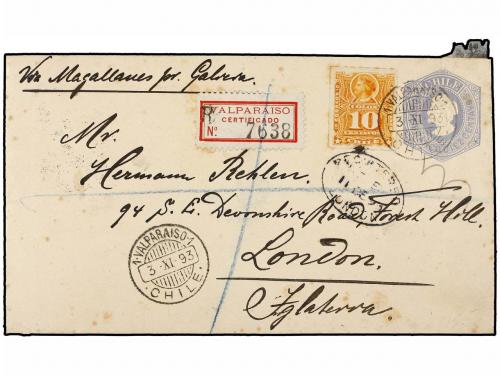 Via Magallanes por Galicia.
R VALPARAISO
CERTIFICADO
Nº 7638
COLON
10
CHILE
VALPARAISO
3 XI 93
CHILE
REGISTERED
LONDON
Mr.
Hermann Rehlen.
94 S. E. Devonshire Road, Forest Hill.
London.
Inglaterra.
1·VALPARAISO·1
3·XI·93
·CHILE·